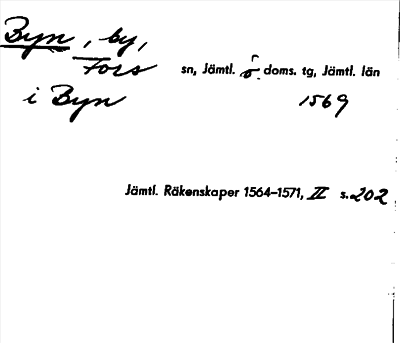 Byn, by,
Fors sn, Jämtl. ö. doms. tg, Jämtl. län
i Byn 1569
Jämtl. Räkenskaper 1564–1571, II s. 202